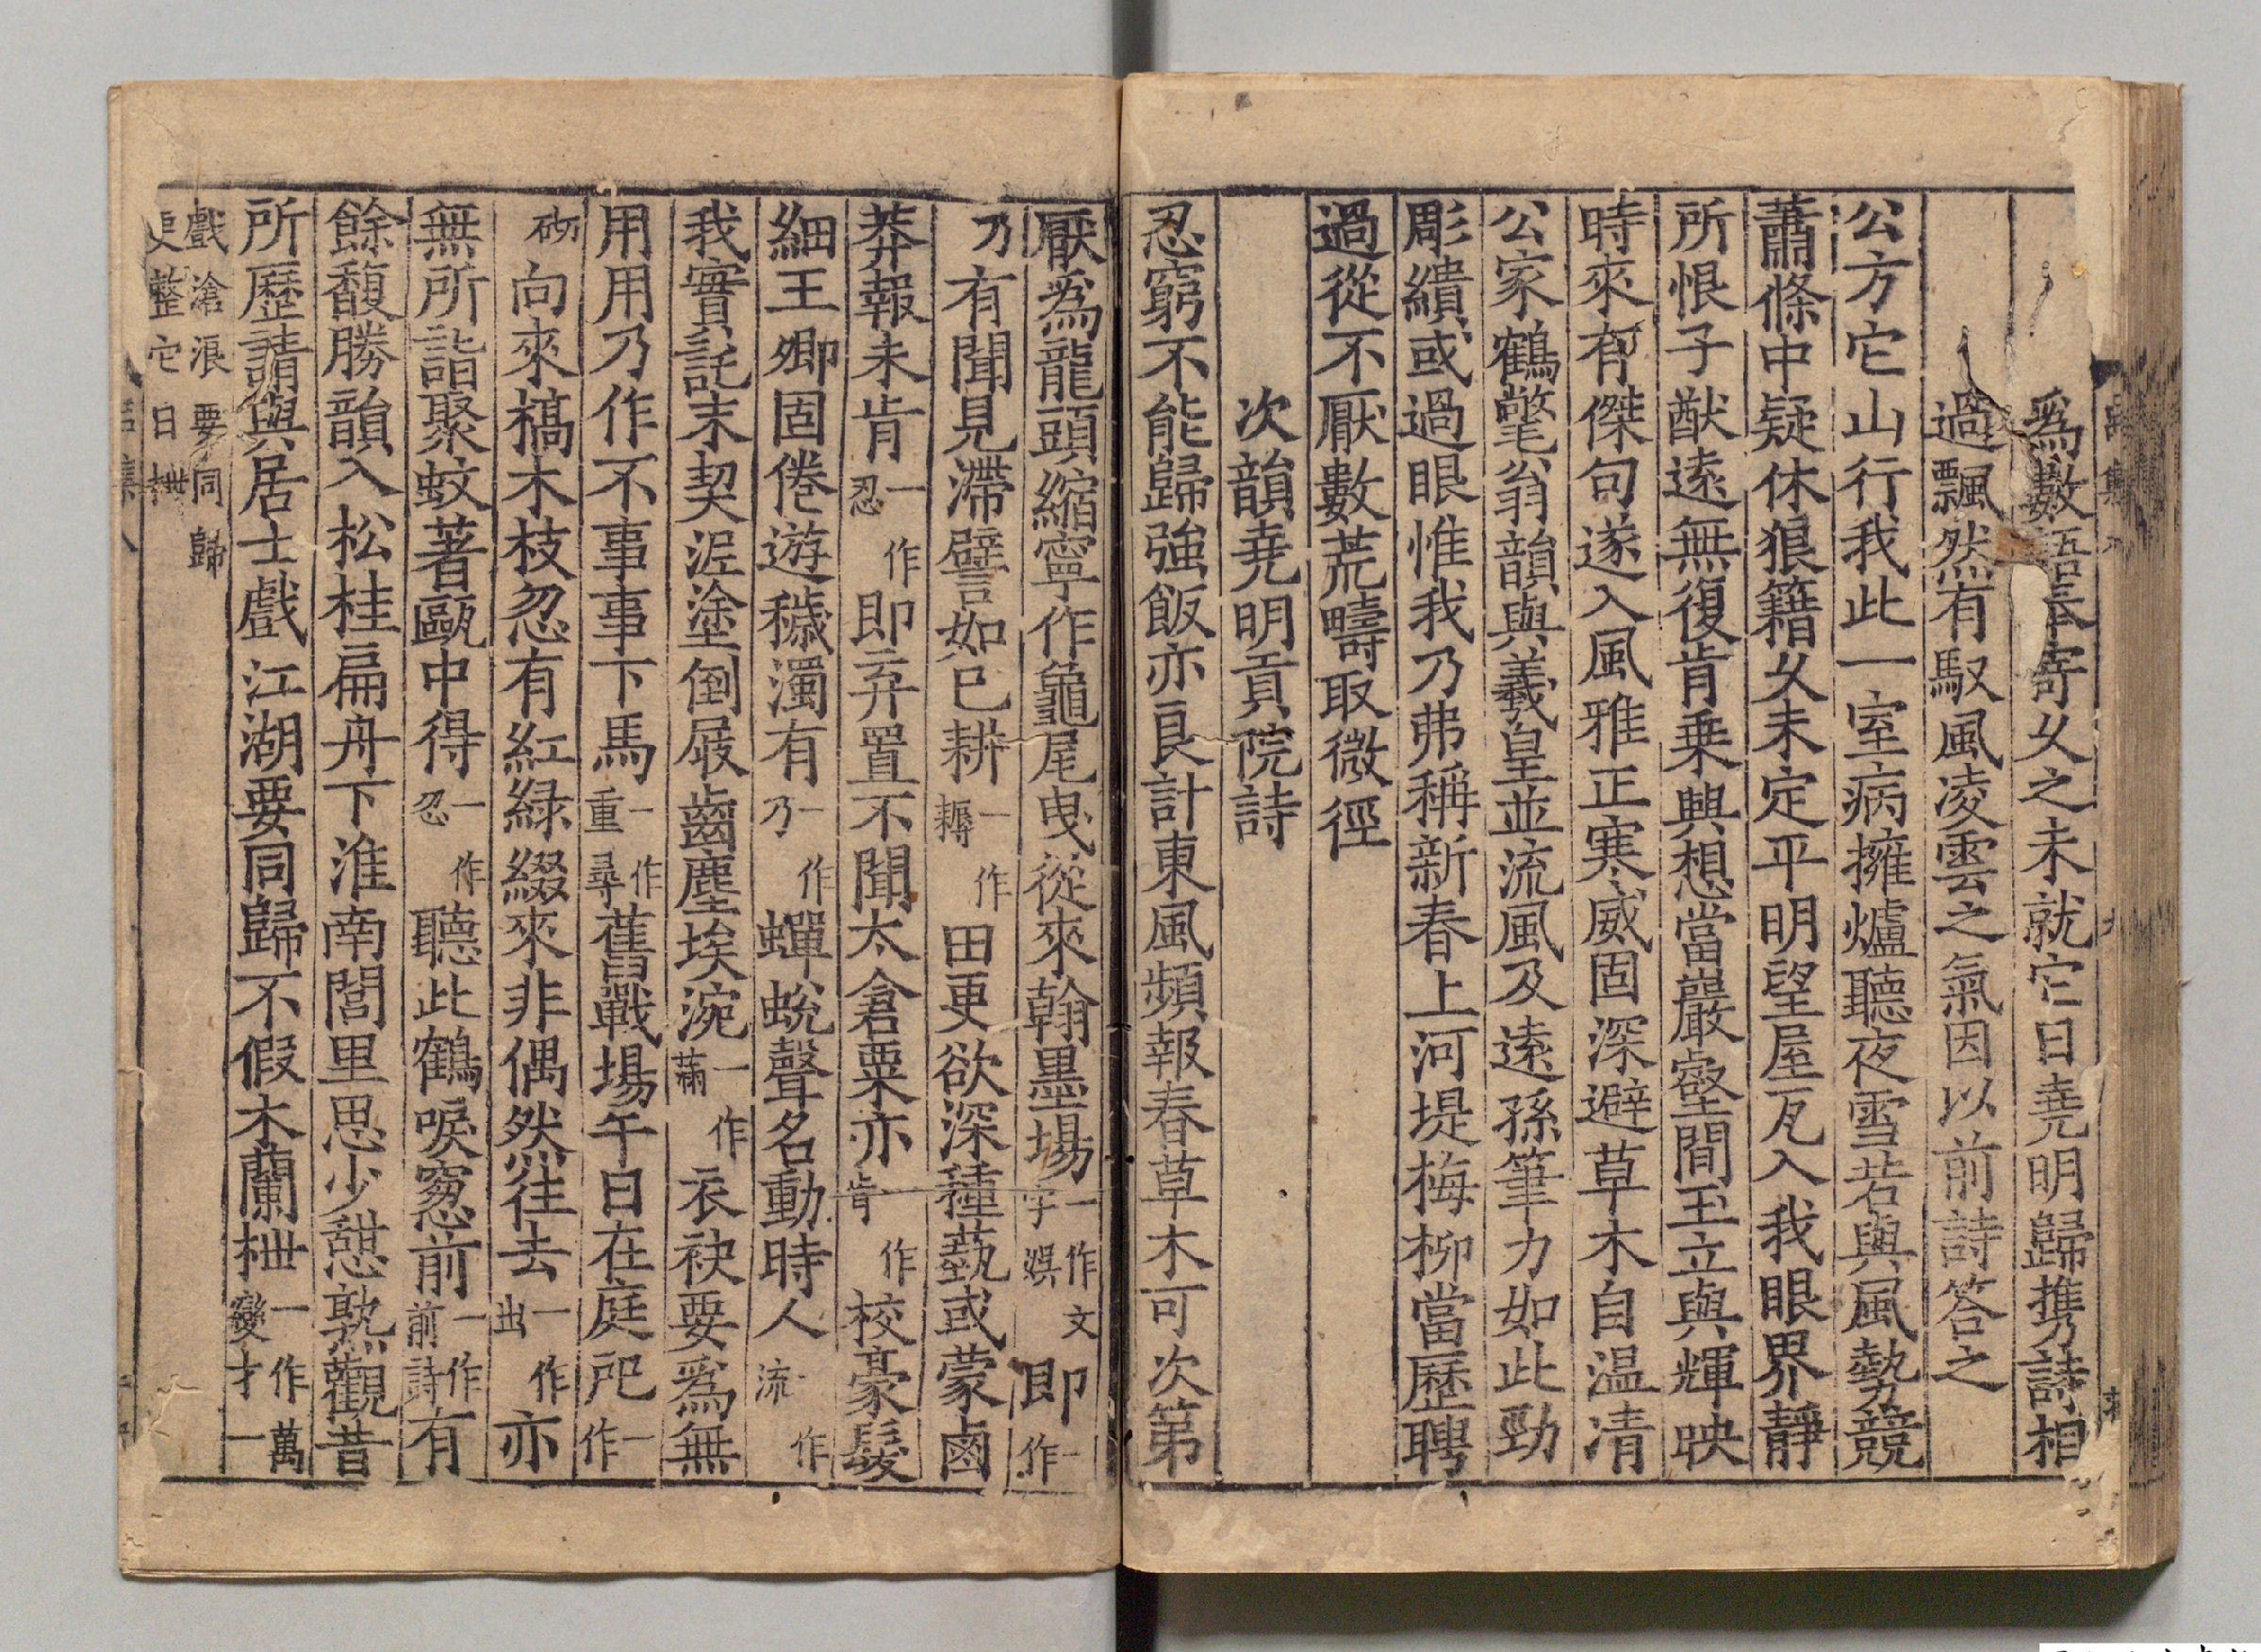 為數語奉寄久之未就它日堯明歸攜詩相
過飄然有馭風凌雲之氣因以前詩答之
公方它山行我此一室病擁爐聽夜雪若與風勢競
蕭條中疑休狼籍久未定平明望屋瓦入我眼界靜
所恨子猷逺無復肯乗興想當巖壑間玉立與輝映
時來有傑句遂入風雅正寒威固深避草木自温清
公家鶴氅翁韻與羲皇並流風及逺孫筆力如此勁
彫繢或過眼惟我乃弗稱新春上河堤梅柳當歷聘
過從不厭數荒疇取微徑
次韻堯明貢院詩
忍窮不能歸強飯亦良計東風頻報春草木可次第
厭為龍頭縮寧作龜尾曳從來翰墨場一作文字娯即一作
乃有聞見滯譬如已耕一作耨田更欲深種蓺或蒙鹵
莽報未肯一作忍即弃置不聞太倉粟亦一作肯校豪髮
細王卿固倦遊穢濁有一作乃蟬蛻聲名動時人一作流
我實託末契泥塗倒屐齒塵埃涴一作滿衣袂要為無
用用乃作不事事下馬一作重尋舊戰場午日在庭戺一作
砌向來槁木枝忽有紅緑綴來非偶然往去一作出亦
無所詣聚蚊著甌中得一作忍聽此鶴唳窻前一作前詩有
餘馥勝韻入松桂扁舟下淮南閭里思少憇熟觀昔
所歷請與居士戲江湖要同歸不假木蘭枻一作萬變才一
戲滄浪要同歸
更整它日枻